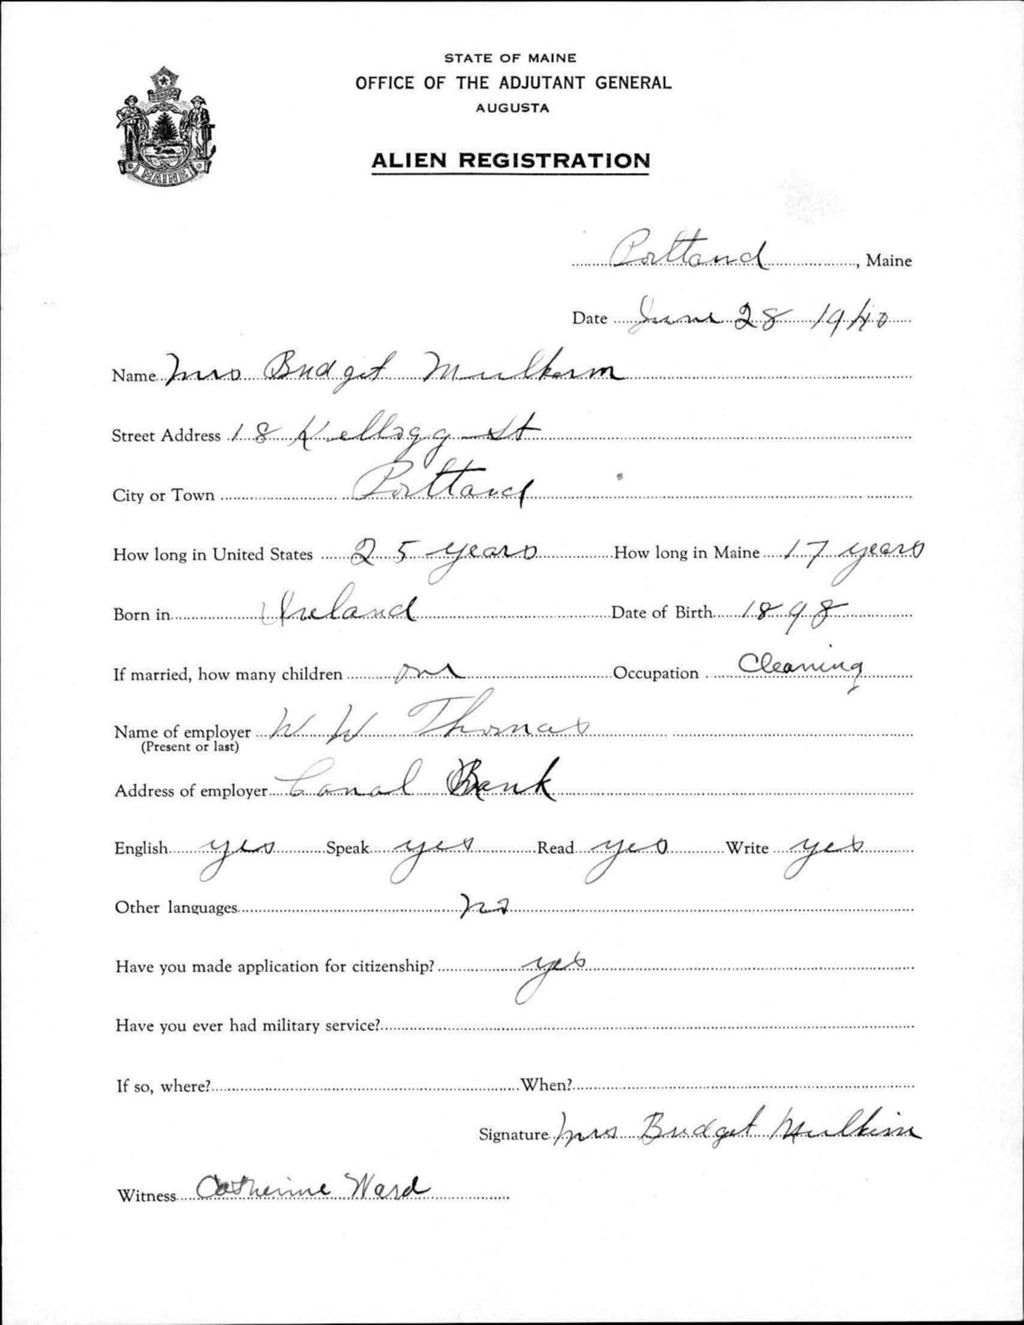 STATE OF MAINE
OFFICE OF THE ADJUTANT GENERAL
AUGUSTA
ALIEN REGISTRATION
MAINE
Portland, Maine
Date June 28 1940
Name Mrs Bridget Mulkern
Street Address 18 Kellogg St
City or Town Portland
How long in United States 25 years How long in Maine 17 years
Born in Ireland Date of Birth 1898
If married, how many children one Occupation Cleaning
Name of employer W W Thomas
(Present or last)
Address of employer Canal Bank
English yes Speak yes Read yes Write yes
Other languages no
Have you made application for citizenship? yes
Have you ever had military service?
If so, where? When?
Signature Mrs Bridget Mulkern
Witness Catherine Ward